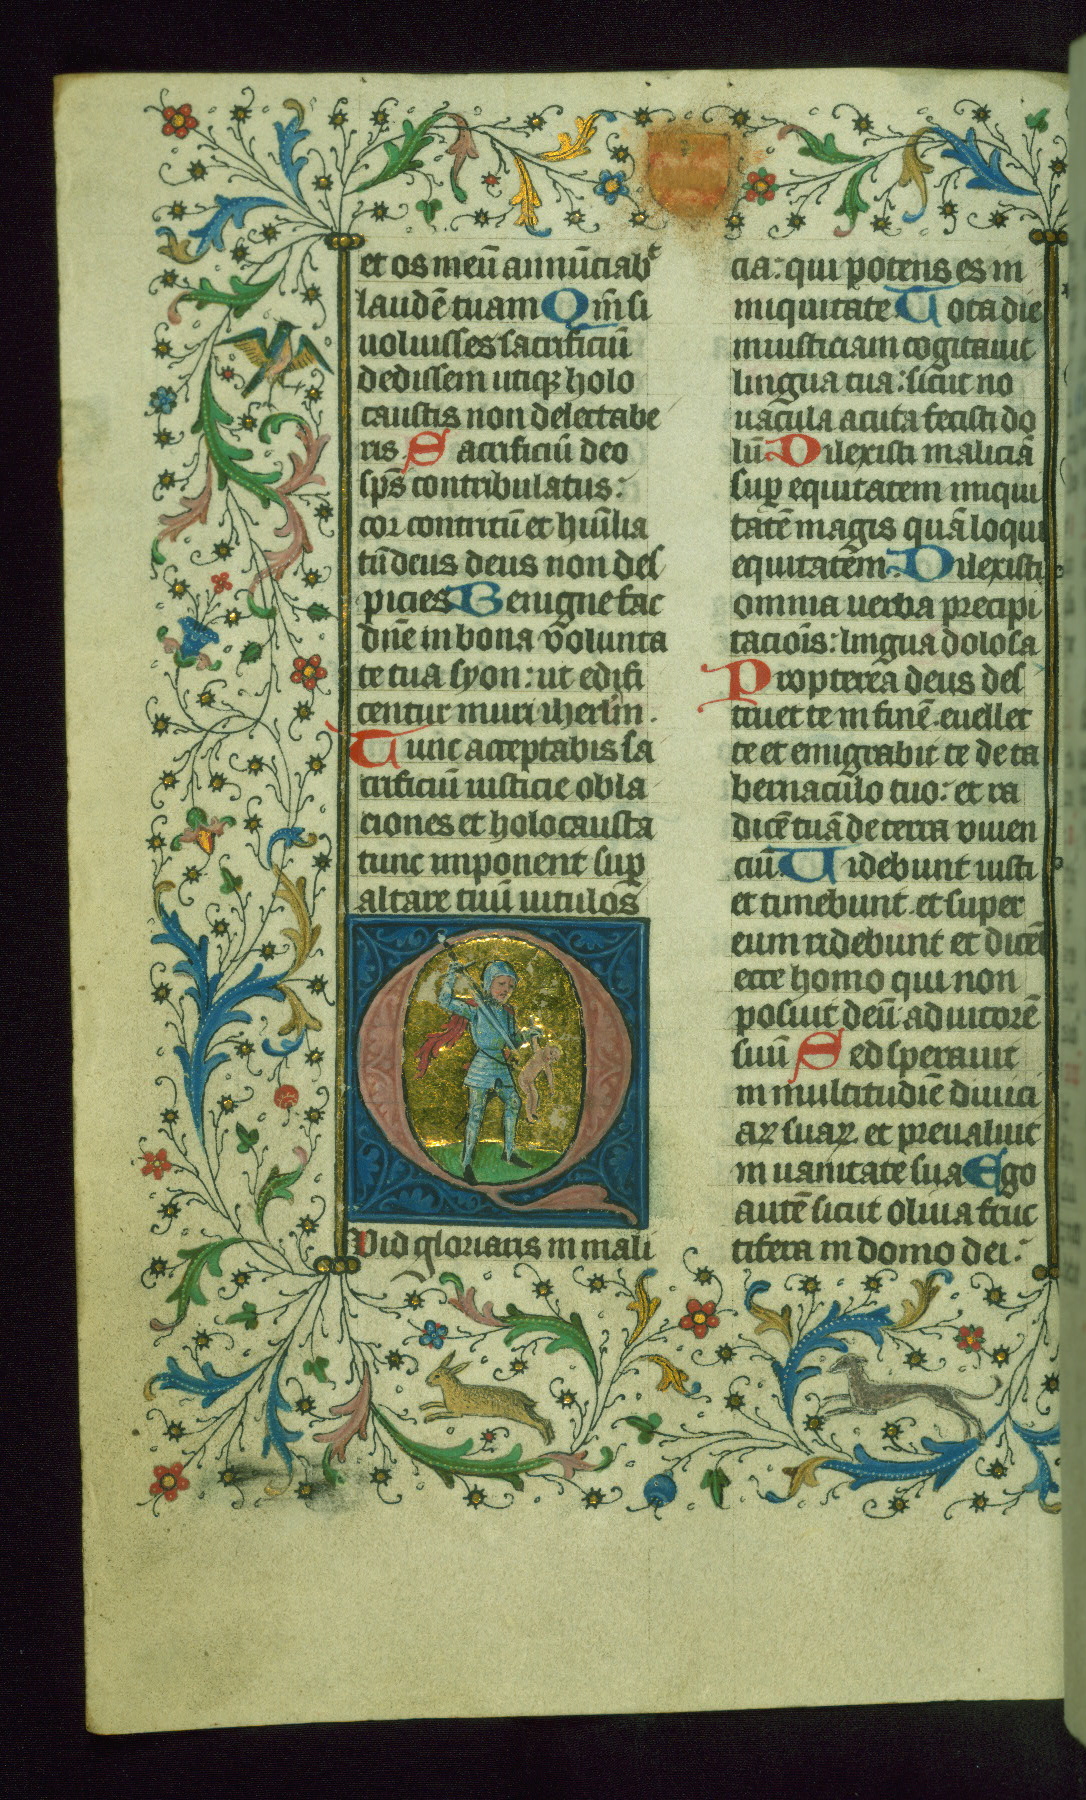 et os meū annūciabᵗ
laudē tuam Qm̄ si
voluisses sacrificiū
dedissem utiqꝫ holo
caustis non delectabe
ris. Sacrificiū deo
sp̄s contribulatus:
cor contritū et hūilia
tū deus deus non des
picies Benigne fac
dn̄e in bona volunta
te tua syon: ut edifi
centur muri iherlm̄.
Tunc acceptabis sa
crificiū iusticie obla
ciones et holocausta
tunc imponent suꝑ
altare tuū vitulos
Quid gloriaris in mali
cia: qui potens es in
iniquitate Tota die
iniusticiam cogitauit
lingua tua: sicut no
uacula acuta fecisti do
lū Dilexisti maliciā
suꝑ equitatem iniqui
tatē magis quā loqui
equitatē Dilexisti
omnia verba precipi
tacioīs: lingua dolosa
Propterea deus des
truet te in finē. euellet
te et emigrabit te de ta
bernaculo tuo: et ra
dicē tuā de terra viuen
ciū. Uidebunt iusti
et timebunt. et super
eum ridebunt et dicēt
ecce homo qui non
posuit deū adiutorē
suū Sed sperauit
in multitudīe diuici
aꝝ suaꝝ. et preualuit
in uanitate sua Ego
autē sicut oliua fruc
tifera in domo dei: